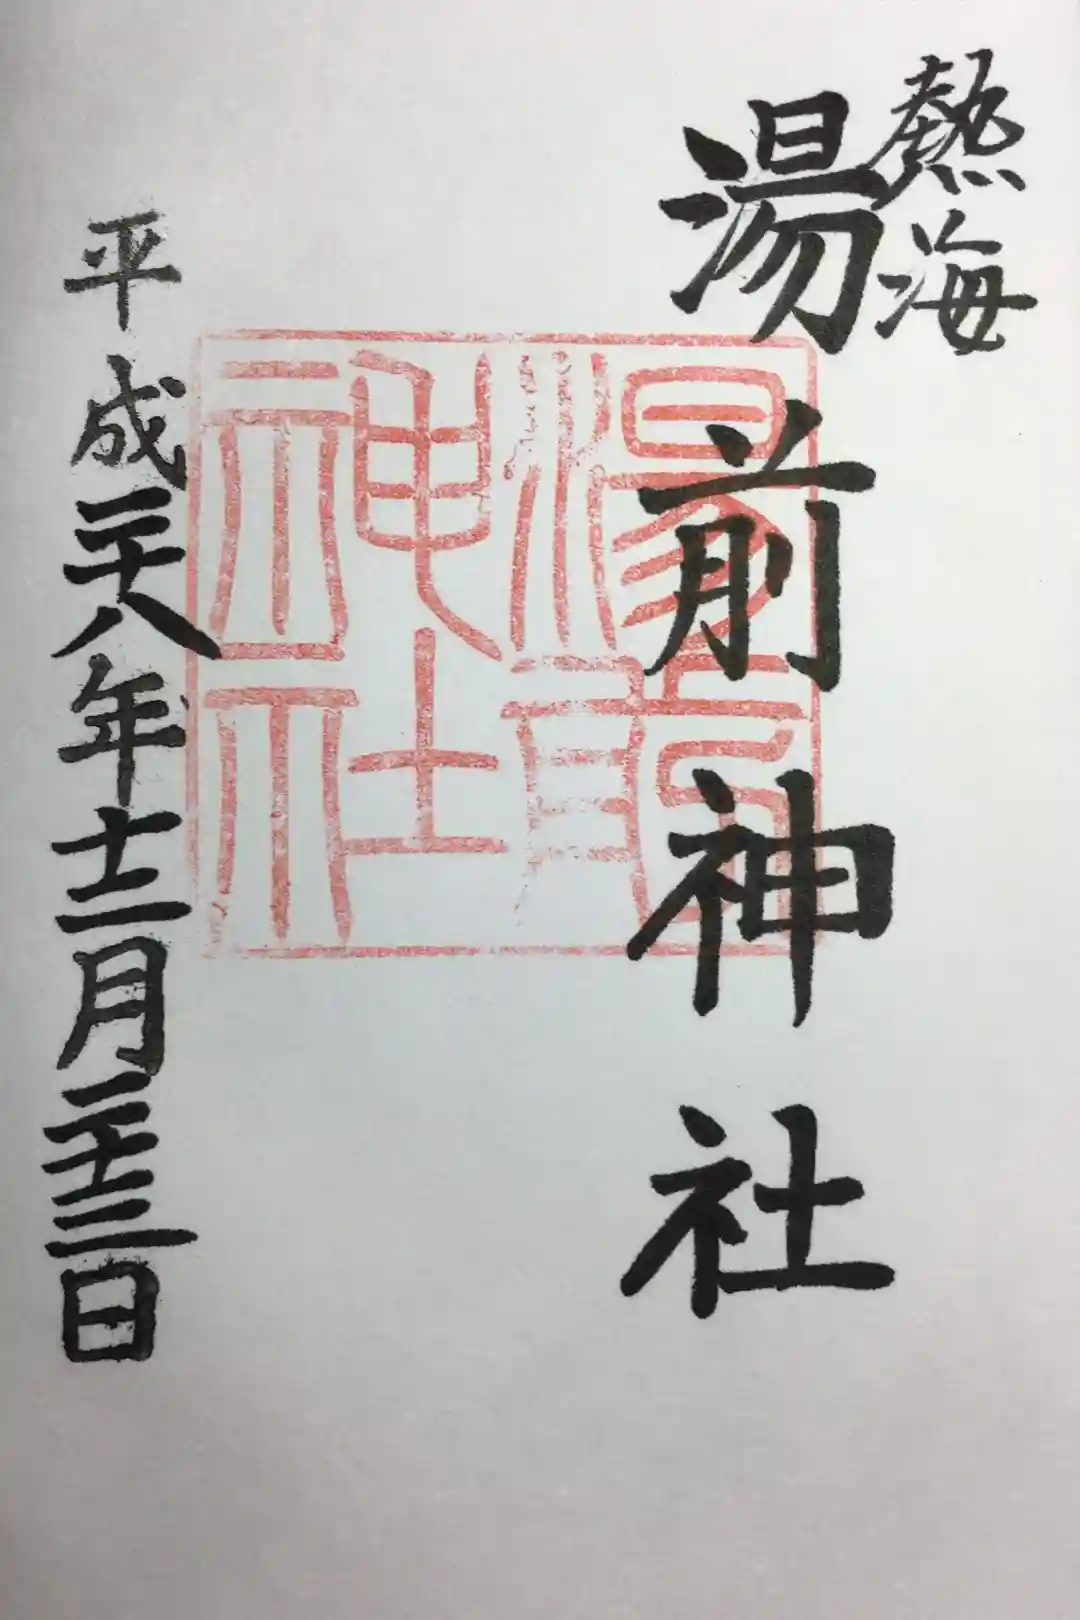 熱海
湯前神社
湯前神社
平成二十八年十二月二十三日